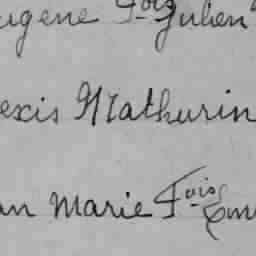 ugene Fois Julien
exis Mathurin
an Marie Fois Em